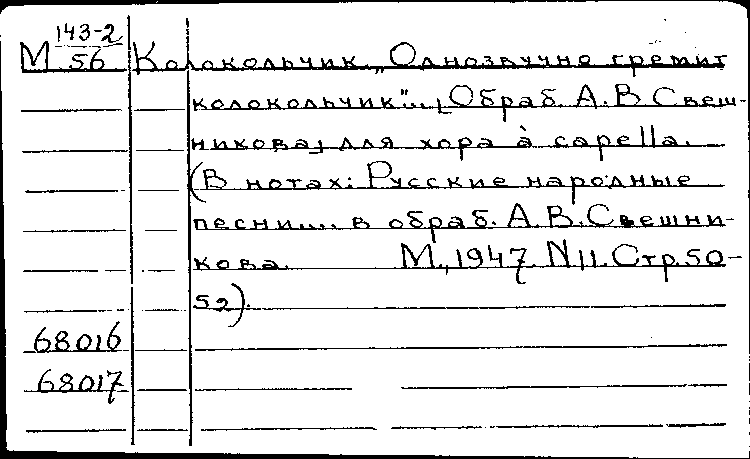 143-2
М 56 Колокольчик. „Однозвучно гремит
колокольчик"... [Обраб. А. В. Свеш-
никова] для хора à capella.
(В нотах: Русские народные
песни.... в обраб. А. В. Свешни-
кова. М., 1947 N 11. Стр. 50-
52).
68016
68017